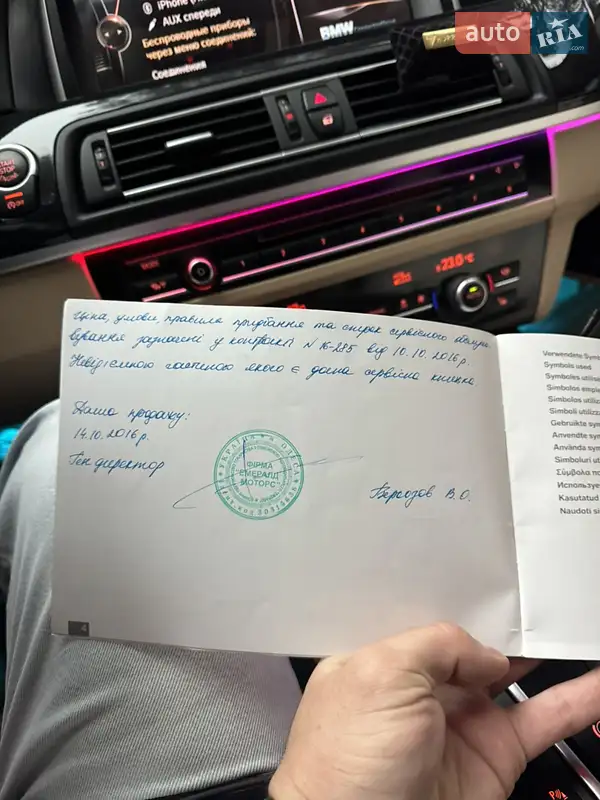 iPhone
AUX спереди
Беспроводные приборы
через меню соединений:
Соединения
BMW
auto RIA .com
START
STOP
MODE
1 2 3 4 5 6 7
23.0°C
AUTO
Ціна, умови, правила придбання та строк сервісного обслуго-
вування зазначені у контракті N 16-285 від 10.10.2016 р.
Невід'ємною частиною якого є дана сервісна книжка.
Дата продажу:
14.10.2016 р.
Ген директор
УКРАЇНА м. ОДЕСА
ФІРМА
"ЕМЕРАЛД
МОТОРС"
В.О.
4
Verwendete Sym
Symbols used
Symboles utilisé
Símbolos emple
Símbolos utiliz
Simboli utilizza
Gebruikte sym
Använda sym
Symboluri ut
Σύμβολα πο
Используе
Kasutatud
Naudoti si